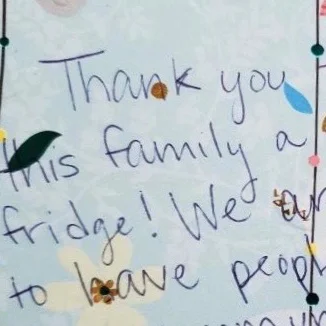 Thank you
this family a
fridge! We
to have